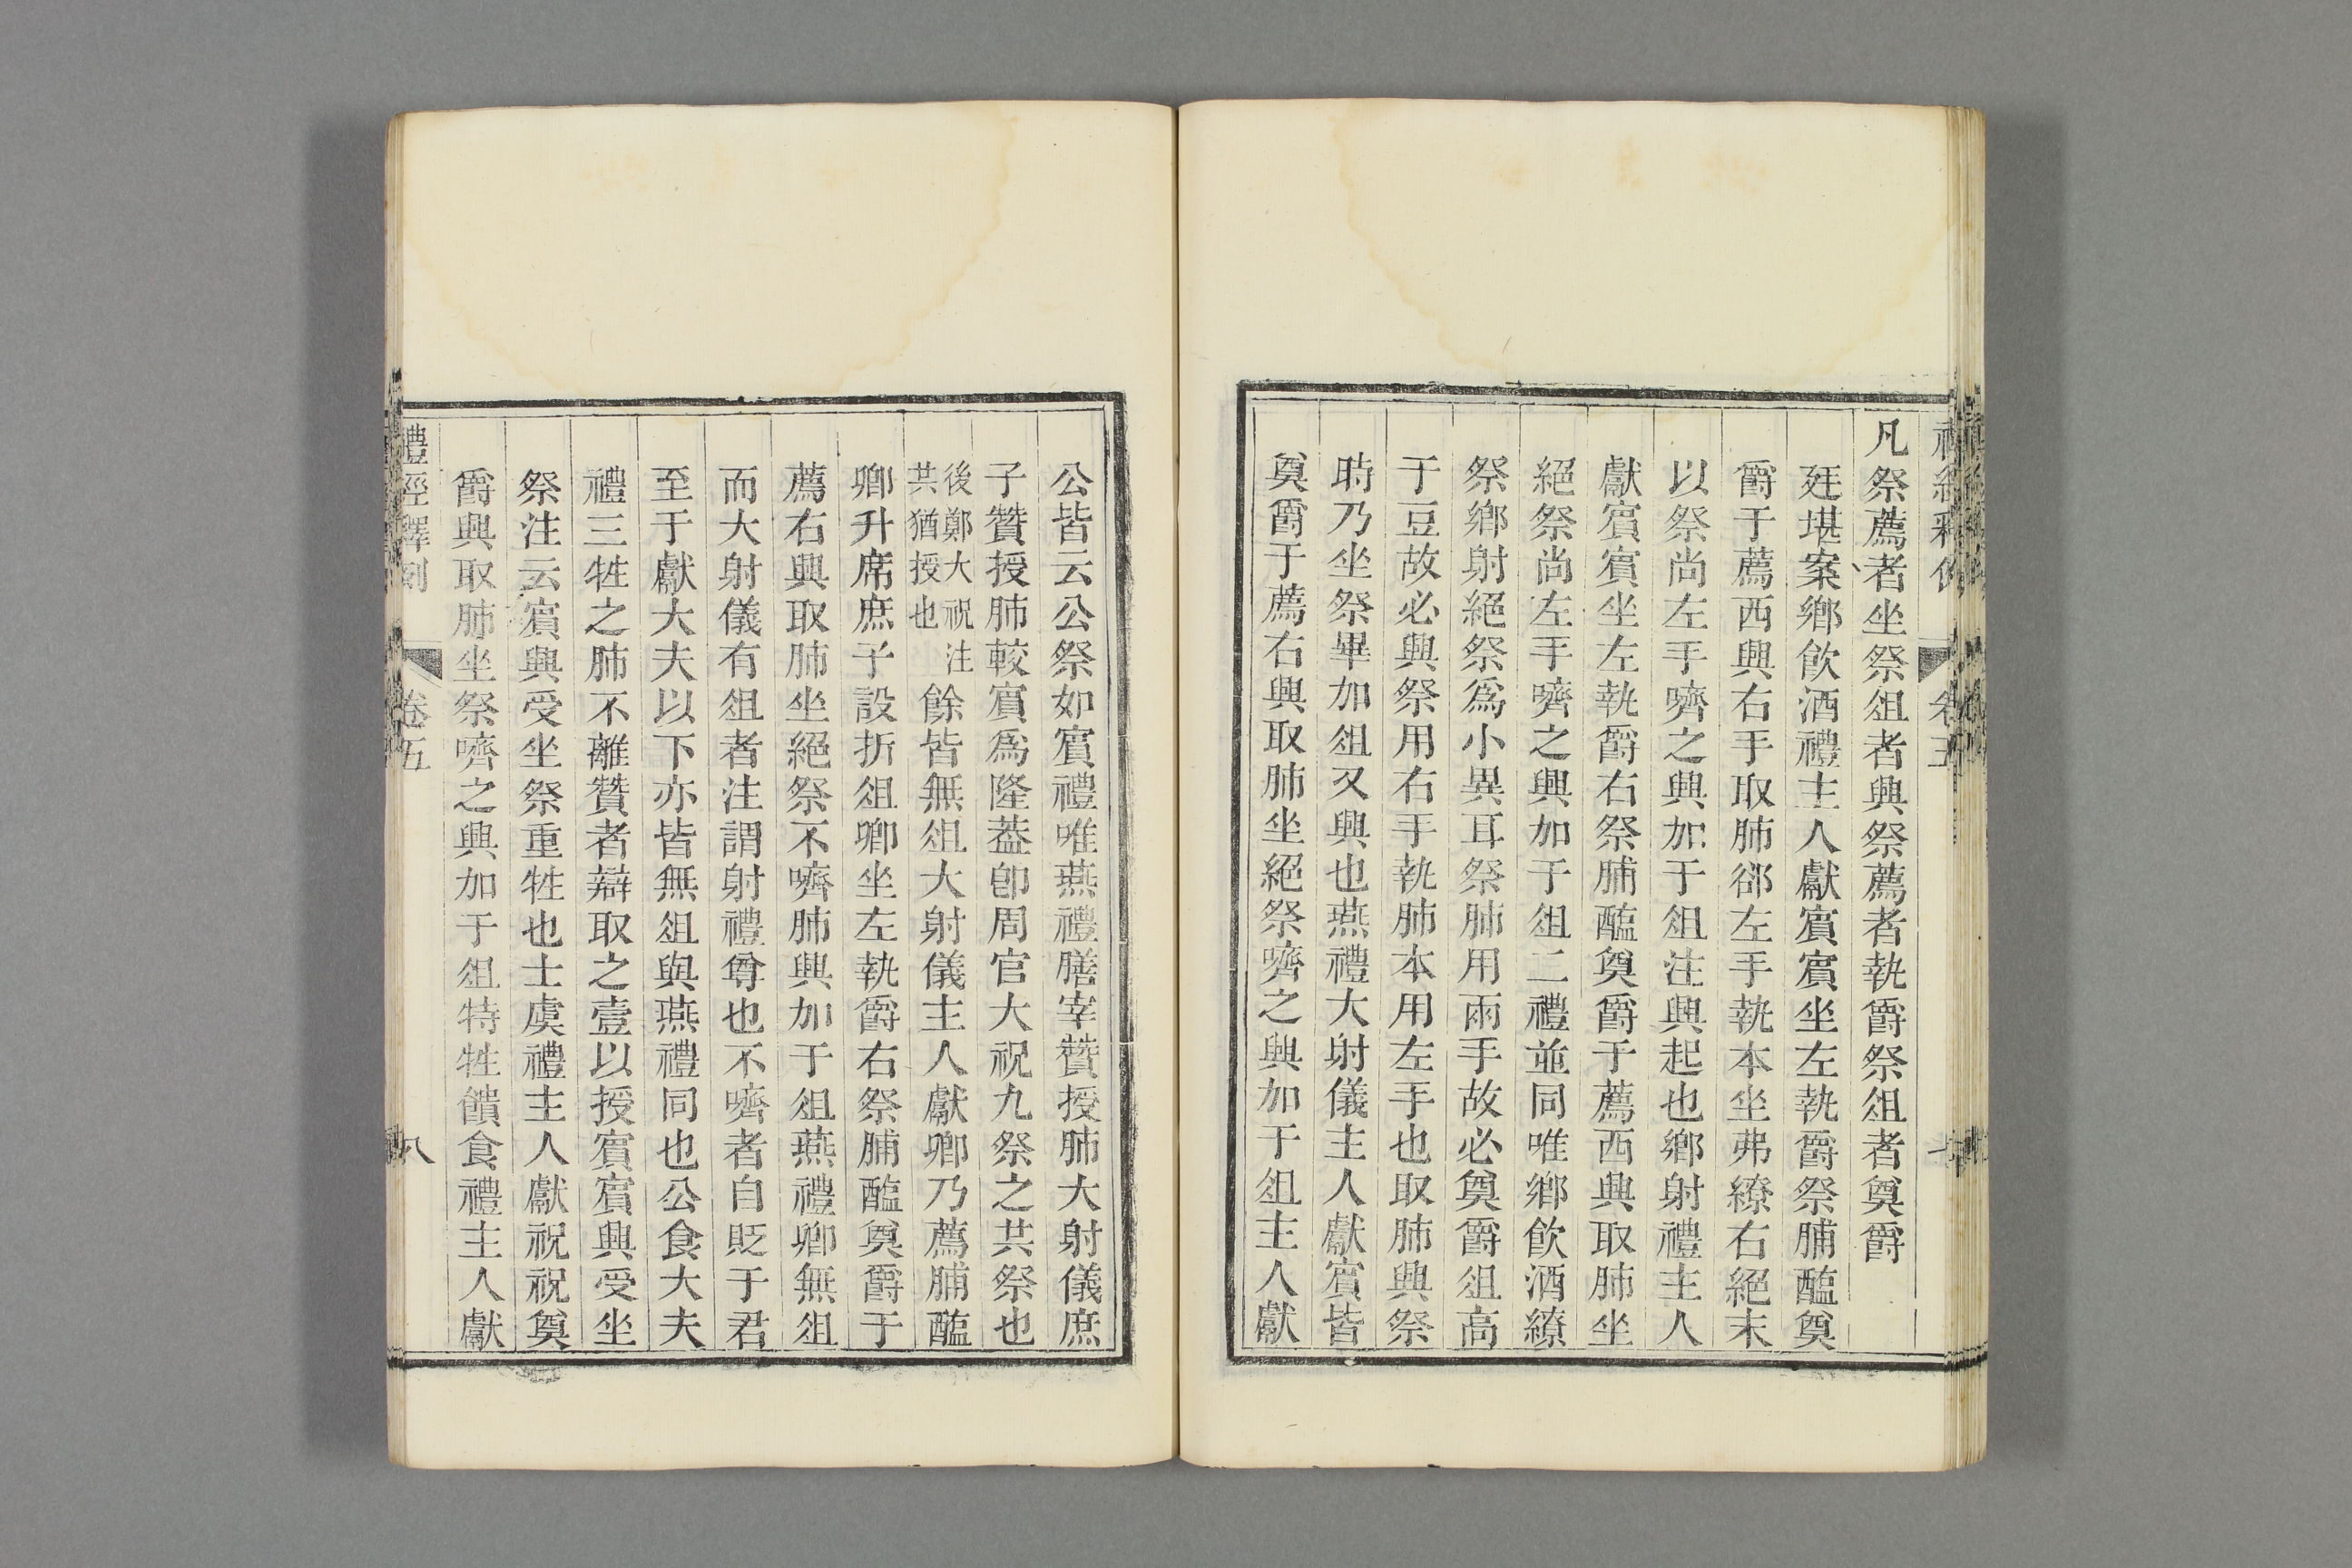 凡祭薦者坐祭俎者興祭薦者執爵祭俎者奠爵
廷堪案鄉飲酒禮主人獻賓賓坐左執爵祭脯醢奠
爵于薦西興右手取肺卻左手執本坐弗繚右絕末
以祭尚左手嚌之興加于俎注興起也鄉射禮主人
獻賓賓坐左執爵右祭脯醢奠爵于薦西興取肺坐
絕祭尚左手嚌之興加于俎二禮並同唯鄉飲酒繚
祭鄉射絕祭爲小異耳祭肺用兩手故必奠爵俎高
于豆故必興祭用右手執肺本用左手也取肺興祭
時乃坐祭畢加俎又興也燕禮大射儀主人獻賓皆
奠爵于薦右興取肺坐絕祭嚌之興加于俎主人獻
公皆云公祭如賓禮唯燕禮膳宰贊授肺大射儀庶
子贊授肺較賓爲隆葢卽周官大祝九祭之共祭也
後鄭大祝注
共猶授也
餘皆無俎大射儀主人獻卿乃薦脯醢
卿升席庶子設折俎卿坐左執爵右祭脯醢奠爵于
薦右興取肺坐絕祭不嚌肺興加于俎燕禮卿無俎
而大射儀有俎者注謂射禮尊也不嚌者自貶于君
至于獻大夫以下亦皆無俎與燕禮同也公食大夫
禮三牲之肺不離贊者辯取之壹以授賓賓興受坐
祭注云賓興受坐祭重牲也士虞禮主人獻祝祝奠
爵興取肺坐祭嚌之興加于俎特牲饋食禮主人獻
禮經釋例
卷五
八